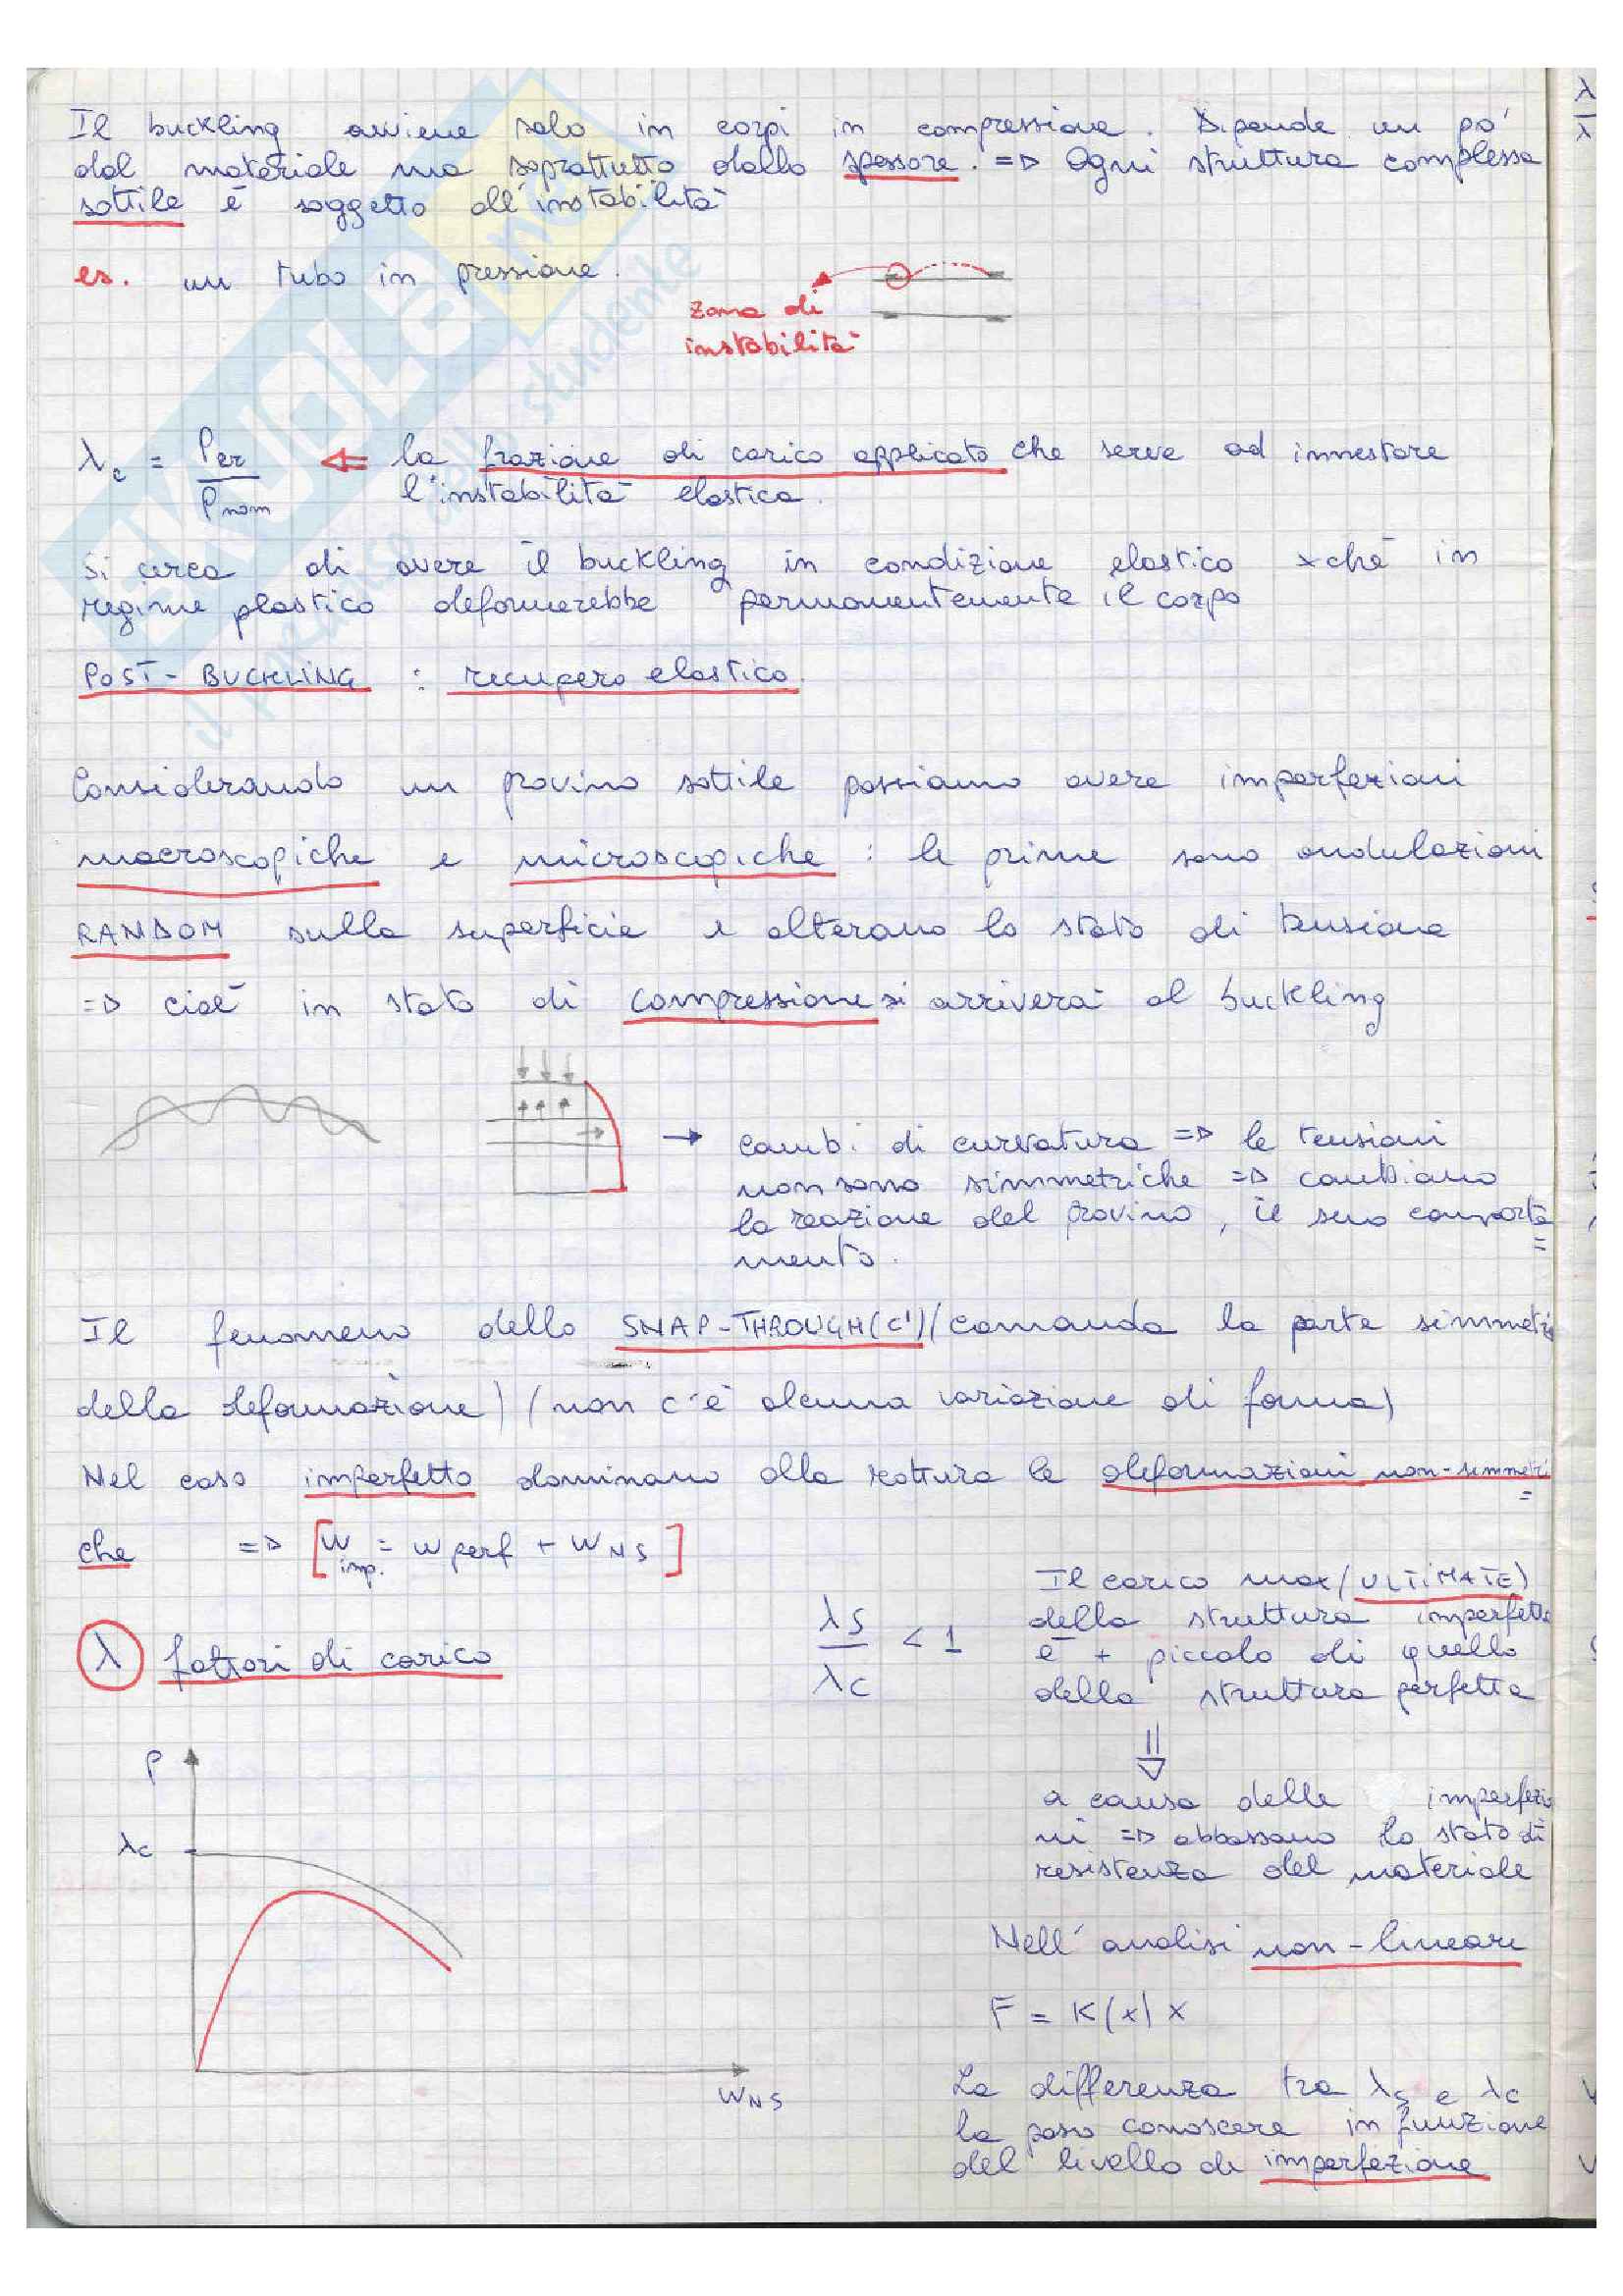 Il buckling avviene solo in corpi in compressione. Dipende un po'
dal materiale ma soprattutto dallo spessore. => Ogni struttura complessa
sottile è soggetta all'instabilità
es. un tubo in pressione.
zona di
instabilità
λc = Pcr / Pnom <= la frazione di carico applicato che serve ad innestare
l'instabilità elastica.
Si cerca di avere il buckling in condizione elastico xché in
regime plastico deformerebbe permanentemente il corpo
POST-BUCKLING : recupero elastico.
Considerando un provino sottile possiamo avere imperfezioni
macroscopiche e microscopiche : le prime sono ondulazioni
RANDOM sulla superficie e alterano lo stato di tensione
=> cioè in stato di compressione si arriverà al buckling
→ cambi di curvatura => le tensioni
non sono simmetriche => cambiano
la reazione del provino, il suo comporta
mento.
Il fenomeno dello SNAP-THROUGH (C') (comanda la parte simmetri
della deformazione) (non c'è alcuna variazione di forma)
Nel caso imperfetto dominano alla rottura le deformazioni non-simmetri
che => [W imp. = W perf + W NS]
λ fattori di carico
λS / λC < 1
Il carico max (ULTIMATE)
della struttura imperfetta
è + piccolo di quello
della struttura perfetta
a causa delle imperfezio
ni => abbassano lo stato di
resistenza del materiale
P
λc
WNS
Nell'analisi non-lineare
F = K(x) x
La differenza tra λS e λC
la posso conoscere in funzione
del livello di imperfezione
SKUOLA.net
il paradiso dello studente